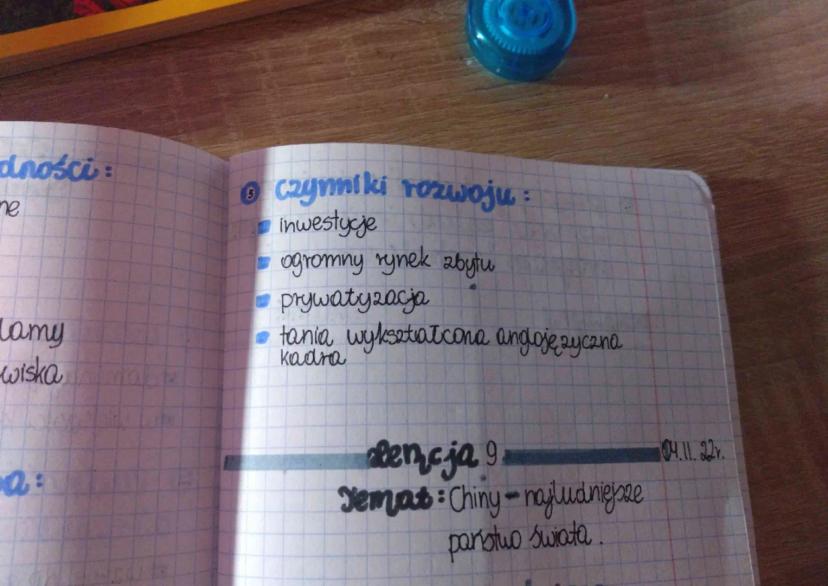 dności:
ne
lamy
wiska
a:
5 czynniki rozwoju:
inwestycje
ogromny rynek zbytu
prywatyzacja
tania wykształcona anglojęzyczna
kadra
Lekcja 9 04.11.22r.
Temat: Chiny - najludniejsze
państwo świata.